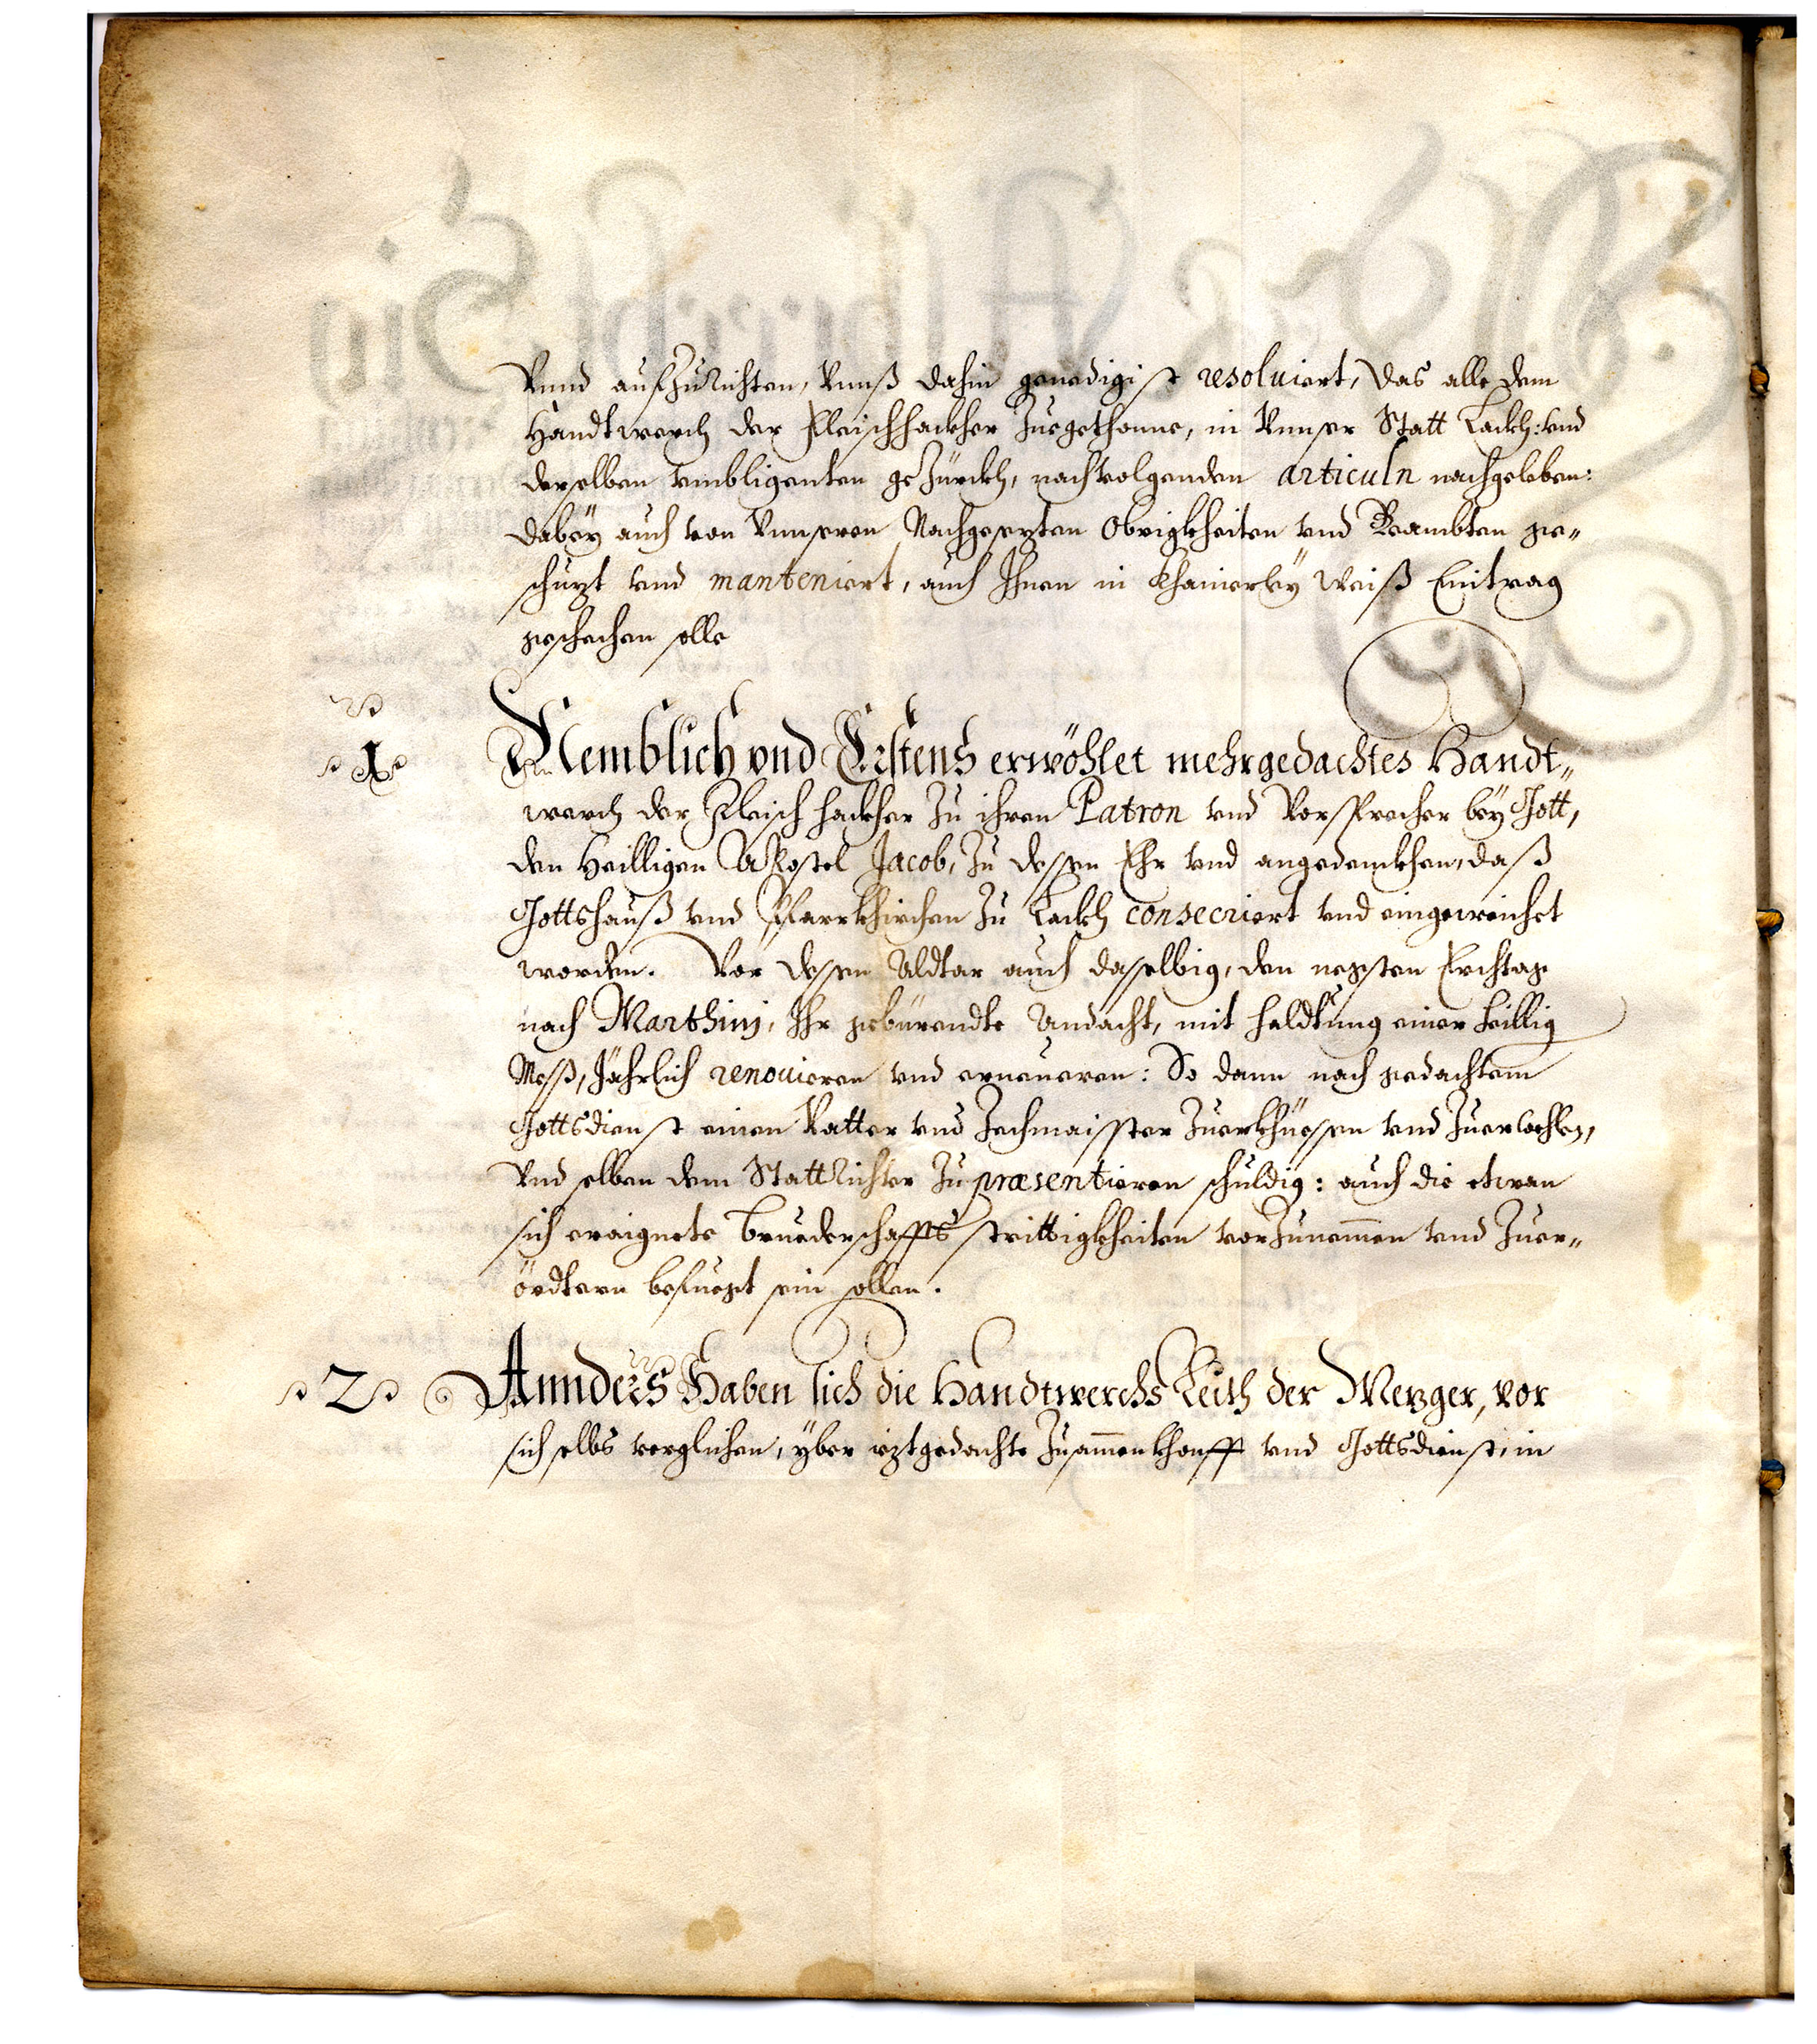 Vnnd aufzurichten, Vnnß dahin genedigist resoluiert, das alle dem
Handtwerch der Fleischhackher Zuegethonne, in Vnnser Statt Lackh: vnd
derselben vmbligenten geZürckh, nachvolgenden articuln nachgeleben:
dabeÿ auch von Vnnseren Nachgesezten Obrigkheiten vnd Beambten ge„
schuzt vnd manteniert, auch Ihnen in khainerleÿ Weiß Eintrag
geschechen solle
1 Nemblich vnd Erstens erwöhlet mehrgedachtes Handt„
werch der Fleischhackher Zu ihren Patron vnd Vorsprecher beÿ Gott,
den Heilligen Apostel Jacob, Zu dessen Ehr vnd angedenckhen, daß
Gottshauß vnd Pfarrkhirchen Zu Lackh consecriert vnd eingeweichet
worden. Vor dessen Altar auch dasselbig, den negsten Erchtag
nach Marthinj, Ihr gebürendte Andacht, mit haldtung einer heillig
Meß, Jährlich renouieren vnd erneueren: So dann nach gedachtem
Gottsdienst einen Vatter vnd Zechmaisster Zuerkhüessen vnd Zuerwehlen,
Vnd selben dem StattRichter Zu præsentieren schuldig: auch die etwan
sich eraignete Bruederschaffts strittigkheiten vorZunemmen vnd Zuer„
ördtern befuegt sein sollen.
2 Annders Haben sich die Handtwerchs Leith der Mezger, vor
sich selbs verglichen, yber iztgedachte Zusammenkhonfft vnd Gottsdienst, in